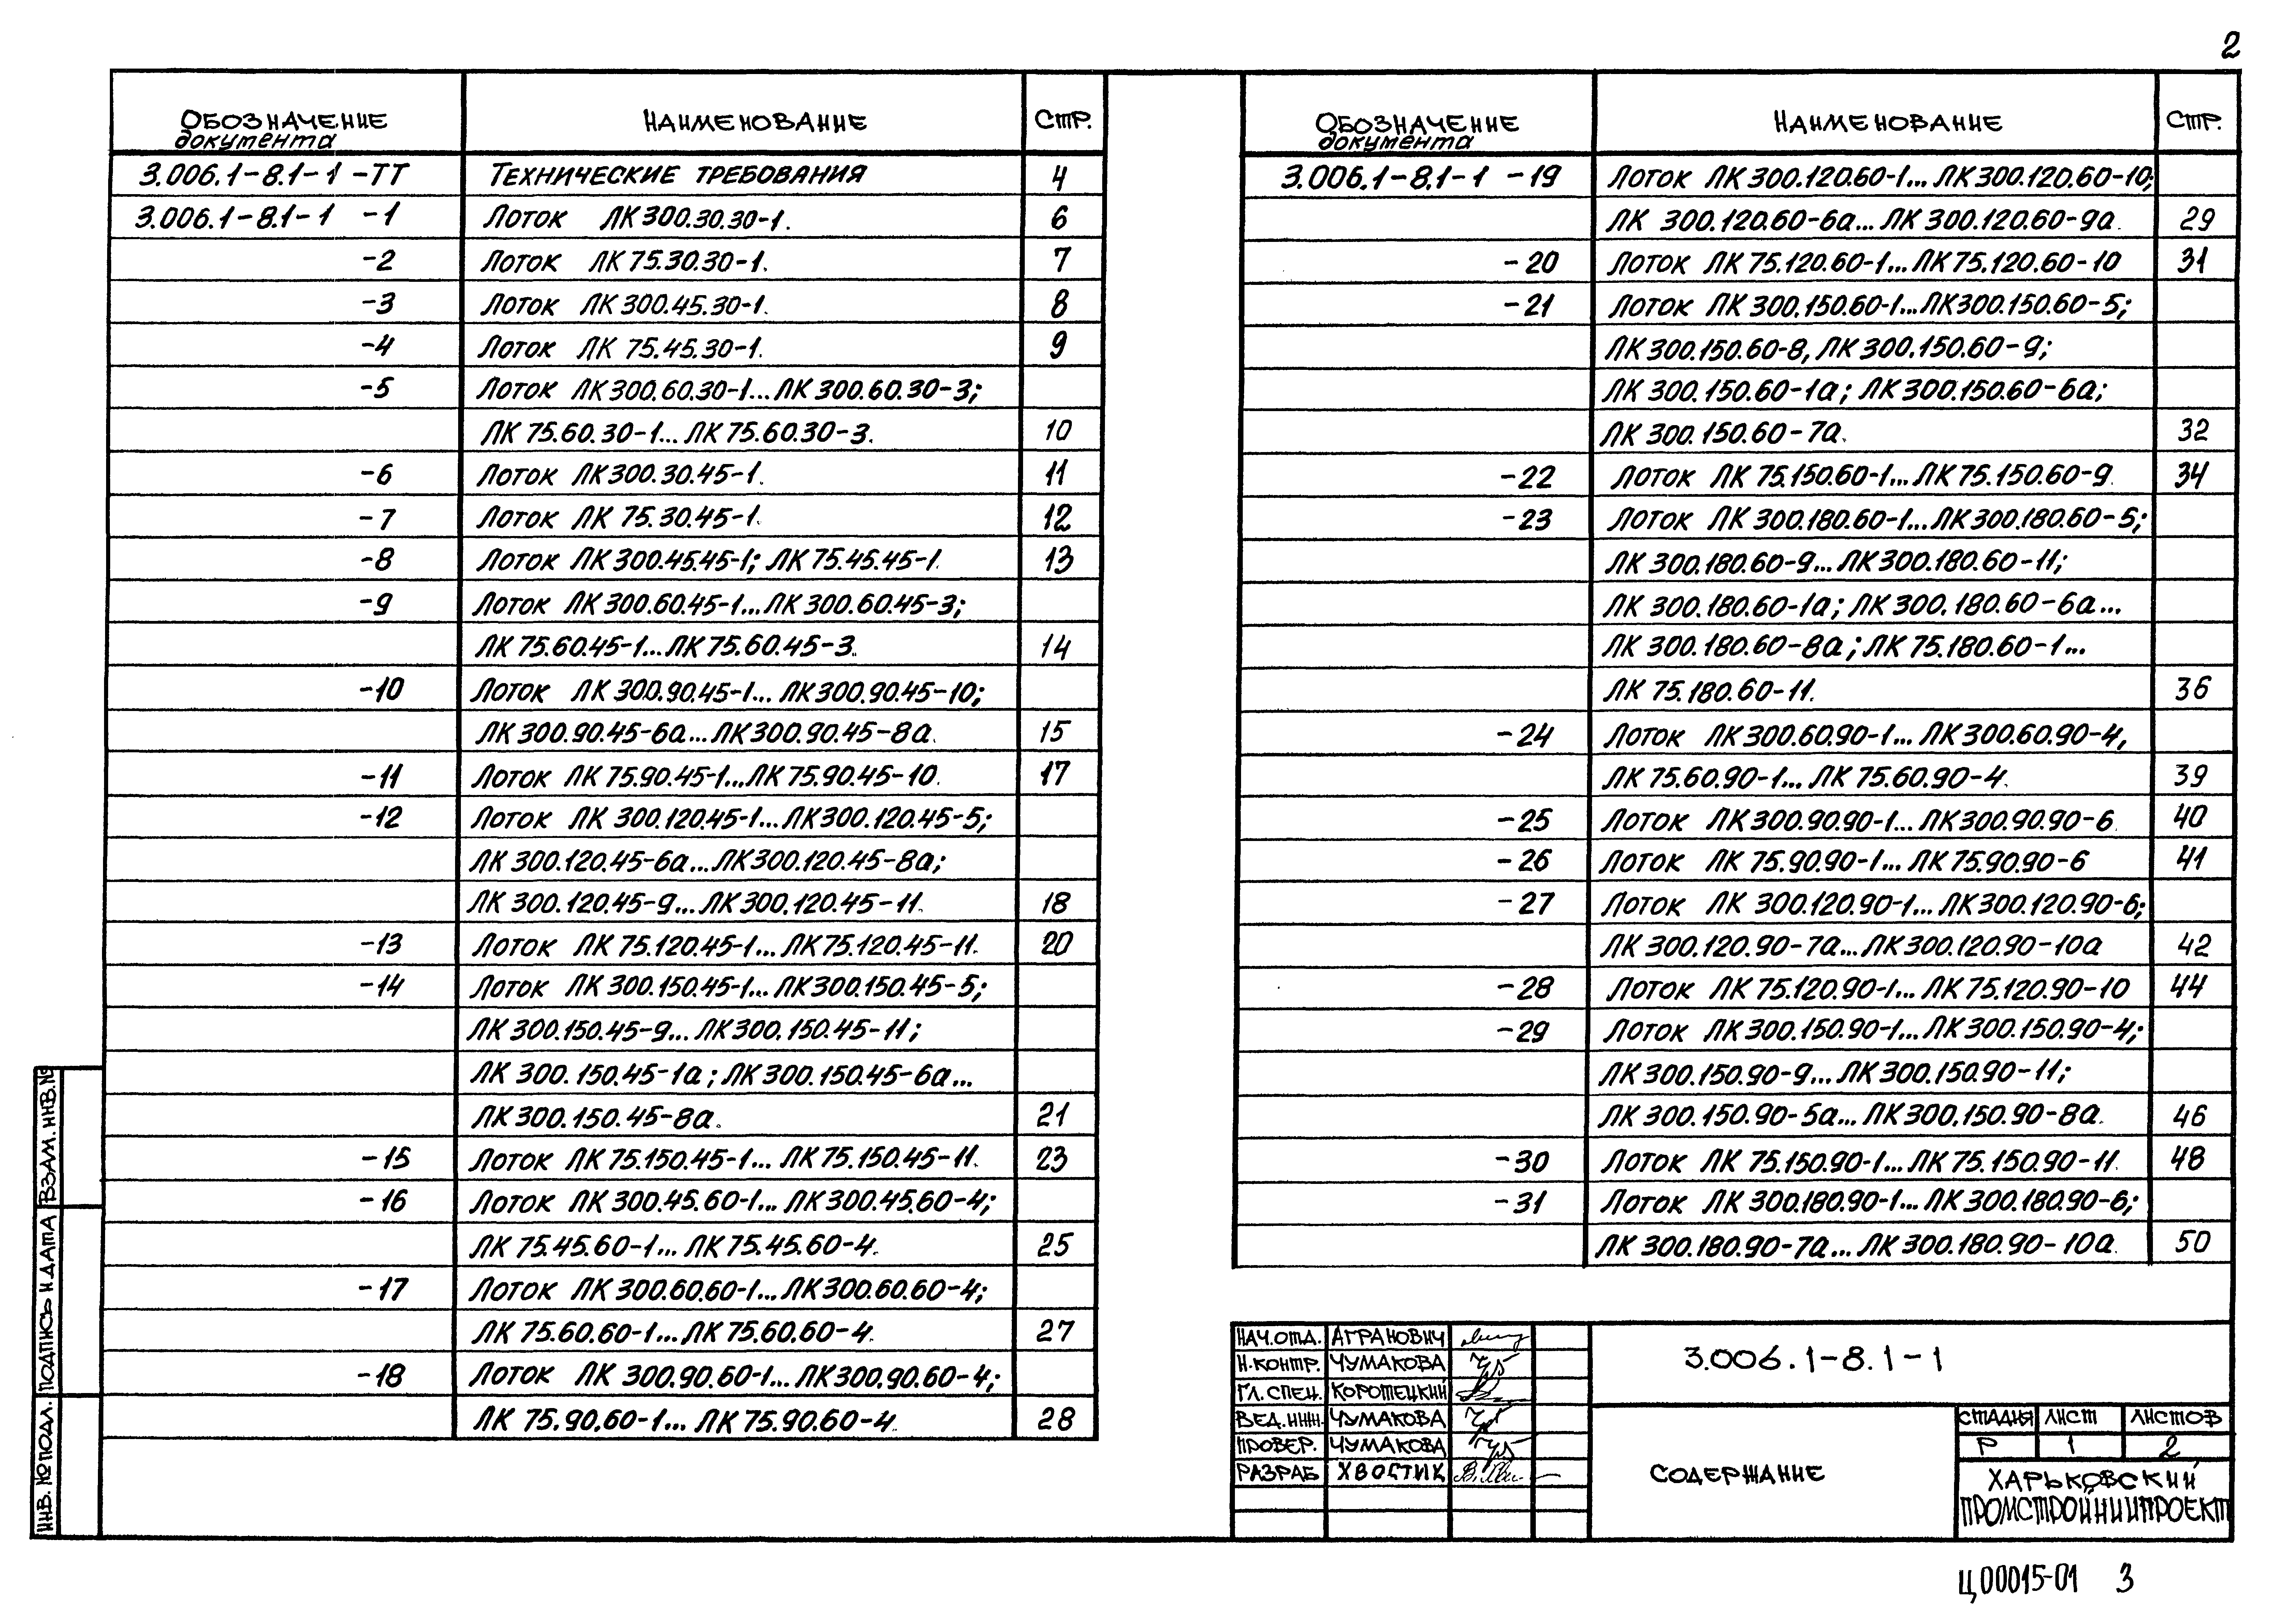 2
ОБОЗНАЧЕНИЕ документа НАИМЕНОВАНИЕ СТР.
3.006.1-8.1-1 -ТТ ТЕХНИЧЕСКИЕ ТРЕБОВАНИЯ 4
3.006.1-8.1-1 -1 Лоток ЛК300.30.30-1. 6
-2 Лоток ЛК75.30.30-1. 7
-3 Лоток ЛК300.45.30-1. 8
-4 Лоток ЛК 75.45.30-1. 9
-5 Лоток ЛК300.60.30-1...ЛК300.60.30-3;
ЛК75.60.30-1...ЛК75.60.30-3. 10
-6 Лоток ЛК300.30.45-1. 11
-7 Лоток ЛК 75.30.45-1. 12
-8 Лоток ЛК300.45.45-1; ЛК75.45.45-1. 13
-9 Лоток ЛК300.60.45-1...ЛК300.60.45-3;
ЛК75.60.45-1...ЛК75.60.45-3. 14
-10 Лоток ЛК300.90.45-1...ЛК300.90.45-10;
ЛК300.90.45-6а...ЛК300.90.45-8а. 15
-11 Лоток ЛК75.90.45-1...ЛК75.90.45-10. 17
-12 Лоток ЛК 300.120.45-1...ЛК300.120.45-5;
ЛК300.120.45-6а...ЛК300.120.45-8а;
ЛК300.120.45-9...ЛК300.120.45-11. 18
-13 Лоток ЛК75.120.45-1...ЛК75.120.45-11. 20
-14 Лоток ЛК300.150.45-1...ЛК300.150.45-5;
ЛК300.150.45-9...ЛК300.150.45-11;
ЛК300.150.45-1а; ЛК300.150.45-6а...
ЛК300.150.45-8а. 21
-15 Лоток ЛК75.150.45-1...ЛК75.150.45-11. 23
-16 Лоток ЛК300.45.60-1...ЛК300.45.60-4;
ЛК75.45.60-1...ЛК75.45.60-4. 25
-17 Лоток ЛК300.60.60-1...ЛК300.60.60-4;
ЛК75.60.60-1...ЛК75.60.60-4. 27
-18 Лоток ЛК300.90.60-1...ЛК300.90.60-4;
ЛК75.90.60-1...ЛК75.90.60-4. 28
ОБОЗНАЧЕНИЕ документа НАИМЕНОВАНИЕ СТР.
3.006.1-8.1-1 -19 Лоток ЛК300.120.60-1...ЛК300.120.60-10;
ЛК 300.120.60-6а...ЛК300.120.60-9а. 29
-20 Лоток ЛК75.120.60-1...ЛК75.120.60-10 31
-21 Лоток ЛК300.150.60-1...ЛК300.150.60-5;
ЛК300.150.60-8, ЛК300.150.60-9;
ЛК300.150.60-1а; ЛК300.150.60-6а;
ЛК300.150.60-7а. 32
-22 Лоток ЛК75.150.60-1...ЛК75.150.60-9. 34
-23 Лоток ЛК300.180.60-1...ЛК300.180.60-5;
ЛК300.180.60-9...ЛК300.180.60-11;
ЛК300.180.60-1а; ЛК300.180.60-6а...
ЛК300.180.60-8а; ЛК75.180.60-1...
ЛК75.180.60-11. 36
-24 Лоток ЛК300.60.90-1...ЛК300.60.90-4,
ЛК75.60.90-1...ЛК75.60.90-4. 39
-25 Лоток ЛК300.90.90-1...ЛК300.90.90-6. 40
-26 Лоток ЛК75.90.90-1...ЛК75.90.90-6 41
-27 Лоток ЛК300.120.90-1...ЛК300.120.90-6;
ЛК300.120.90-7а...ЛК300.120.90-10а 42
-28 Лоток ЛК75.120.90-1...ЛК75.120.90-10 44
-29 Лоток ЛК300.150.90-1...ЛК300.150.90-4;
ЛК300.150.90-9...ЛК300.150.90-11;
ЛК300.150.90-5а...ЛК300.150.90-8а. 46
-30 Лоток ЛК75.150.90-1...ЛК75.150.90-11. 48
-31 Лоток ЛК300.180.90-1...ЛК300.180.90-6;
ЛК300.180.90-7а...ЛК300.180.90-10а. 50
ВЗАМ. ИНВ.№
ПОДПИСЬ И ДАТА
ИНВ. № ПОДЛ.
НАЧ.ОТД. АГРАНОВИЧ
Н.КОНТР. ЧУМАКОВА
ГЛ.СПЕЦ. КОРОТЕЦКИЙ
ВЕД.ИНЖ. ЧУМАКОВА
ПРОВЕР. ЧУМАКОВА
РАЗРАБ ХВОСТИК
3.006.1-8.1-1
СОДЕРЖАНИЕ
СТАДИЯ ЛИСТ ЛИСТОВ
Р 1 2
ХАРЬКОВСКИЙ
ПРОМСТРОЙНИИПРОЕКТ
Ц00015-01 3